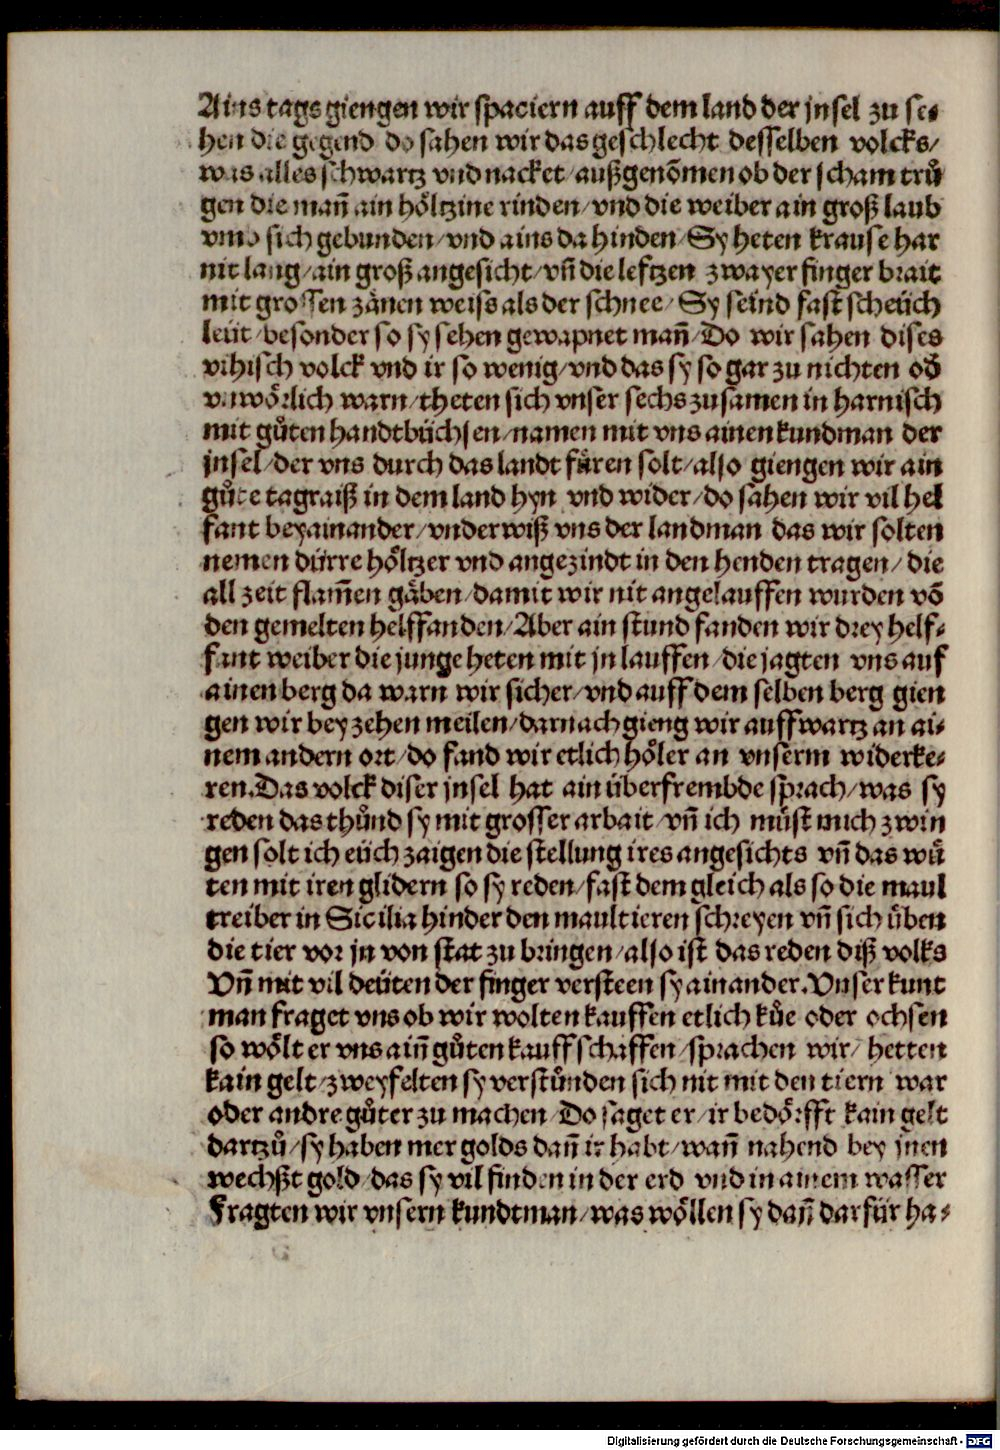 Ains tags giengen wir spaciern auff dem land der jnsel zu se⸗
hen die gegend do sahen wir das geschlecht desselben volcks/
was alles schwartz vnd nacket/außgenōmen ob der scham truͤ
gen die mañ ain hoͤltzine rinden/vnd die weiber ain groß laub
vmb sich gebunden/vnd ains da hinden/Sy heten krause har
nit lang/ain groß angesicht/vñ die leftzen zwayer finger brait
mit grossen zaͤnen weiss als der schnee/Sy seind fast scheuͤch
leuͤt/besonder so sy sehen gewapnet mañ/Do wir sahen dises
vihisch volck vnd ir so wenig/vnd das sy so gar zu nichten od̄
vnwoͤrlich warn/theten sich vnser sechs zusamen in harnisch
mit guͤten handtbuͤchsen/namen mit vns ainen kundman der
jnsel/der vns durch das landt fuͤren solt/also giengen wir ain
guͤte tagraiß in dem land hyn vnd wider/do sahen wir vil hel
fant beyainander/vnderwiß vns der landman das wir solten
nemen duͤrre hoͤltzer vnd angezindt in den henden tragen/die
all zeit flam̄en gaͤben/damit wir nit angelauffen wurden vō
den gemelten helffanden/Aber ain stund fanden wir drey helf⸗
fant weiber die junge heten mit jn lauffen/die jagten vns auf
ainen berg da warn wir sicher/vnd auff dem selben berg gien
gen wir bey zehen meilen/darnach gieng wir auffwartz an ai⸗
nem andern ort/do fand wir etlich hoͤler an vnserm widerke⸗
ren.Das volck diser jnsel hat ain uͤberfrembde sprach/was sy
reden das thuͤnd sy mit grosser arbait/vñ ich muͤst mich zwin
gen solt ich euͤch zaigen die stellung ires angesichts vñ das wuͤ
ten mit iren glidern so sy reden/fast dem gleich als so die maul
treiber in Sicilia hinder den maultieren schreyen vñ sich uͤben
die tier vor jn von stat zu bringen/also ist das reden diß volks
Vñ mit vil deuͤten der finger versteen sy ainander.Vnser kunt
man fraget vns ob wir wolten kauffen etlich kuͤe oder ochsen
so woͤlt er vns aiñ guͤten kauff schaffen/sprachen wir/hetten
kain gelt/zweyfelten sy verstuͤnden sich nit mit den tiern war
oder andre guͤter zu machen/Do saget er/ir bedoͤrfft kain gelt
dartzuͤ/sy haben mer golds dañ ir habt/wañ nahend bey jnen
wechßt gold/das sy vil finden in der erd vnd in ainem wasser
Fragten wir vnsern kundtman/was woͤllen sy dañ darfuͤr ha⸗
Digitalisierung gefördert durch die Deutsche Forschungsgemeinschaft - DFG